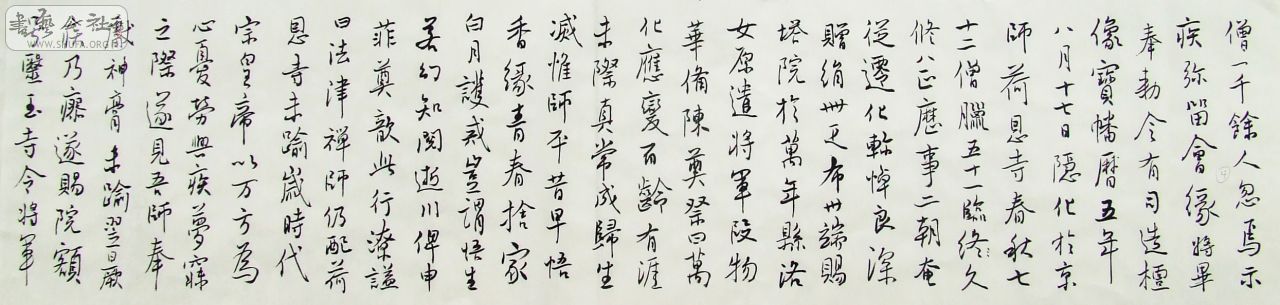 僧一千餘人忽焉示
疾弥留會緣將畢
奉勅令有司造檀
像寶幡曆五年
八月十七日隱化於京
師荷恩寺春秋七
十二僧臘五十一臨終久
修八正歷事二朝奄
從遷化軫悼良深
贈絹卅疋布卅端賜
塔院於萬年縣洛
女原遣將軍段物
華備陳奠祭曰萬
化應變百齡有涯
未際真常咸歸生
滅惟師平昔早悟
香緣青春捨家
白月護戒豈謂悟生
若幻知閱逝川俾申
菲奠歆此行潦謚
曰法津禪師仍配荷
恩寺未踰歲時代
宗皇帝以万方為
心憂勞興疾夢寐
之際遂見吾師奉
獻神膏未踰翌日厥
疾乃瘳遂賜院額
號醫王寺令將軍
書藝社
WWW.SHUFA.ORG